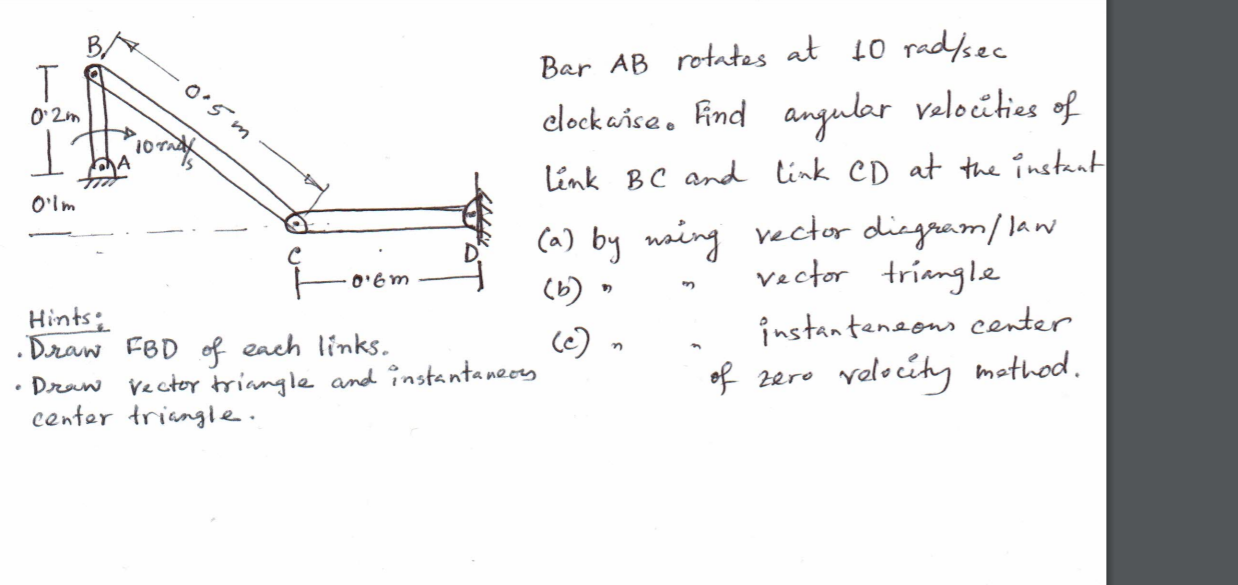 B
0.2m
0.5m
10 rad/s
A
0.1m
C
D
0.6m
Hints:
. Draw FBD of each links.
. Draw vector triangle and instantaneous
center triangle.
Bar AB rotates at 10 rad/sec
clockwise. Find angular velocities of
link BC and link CD at the instant
(a) by using vector diagram/law
(b) " " vector triangle
(c) " " instantaneous center
of zero velocity method.